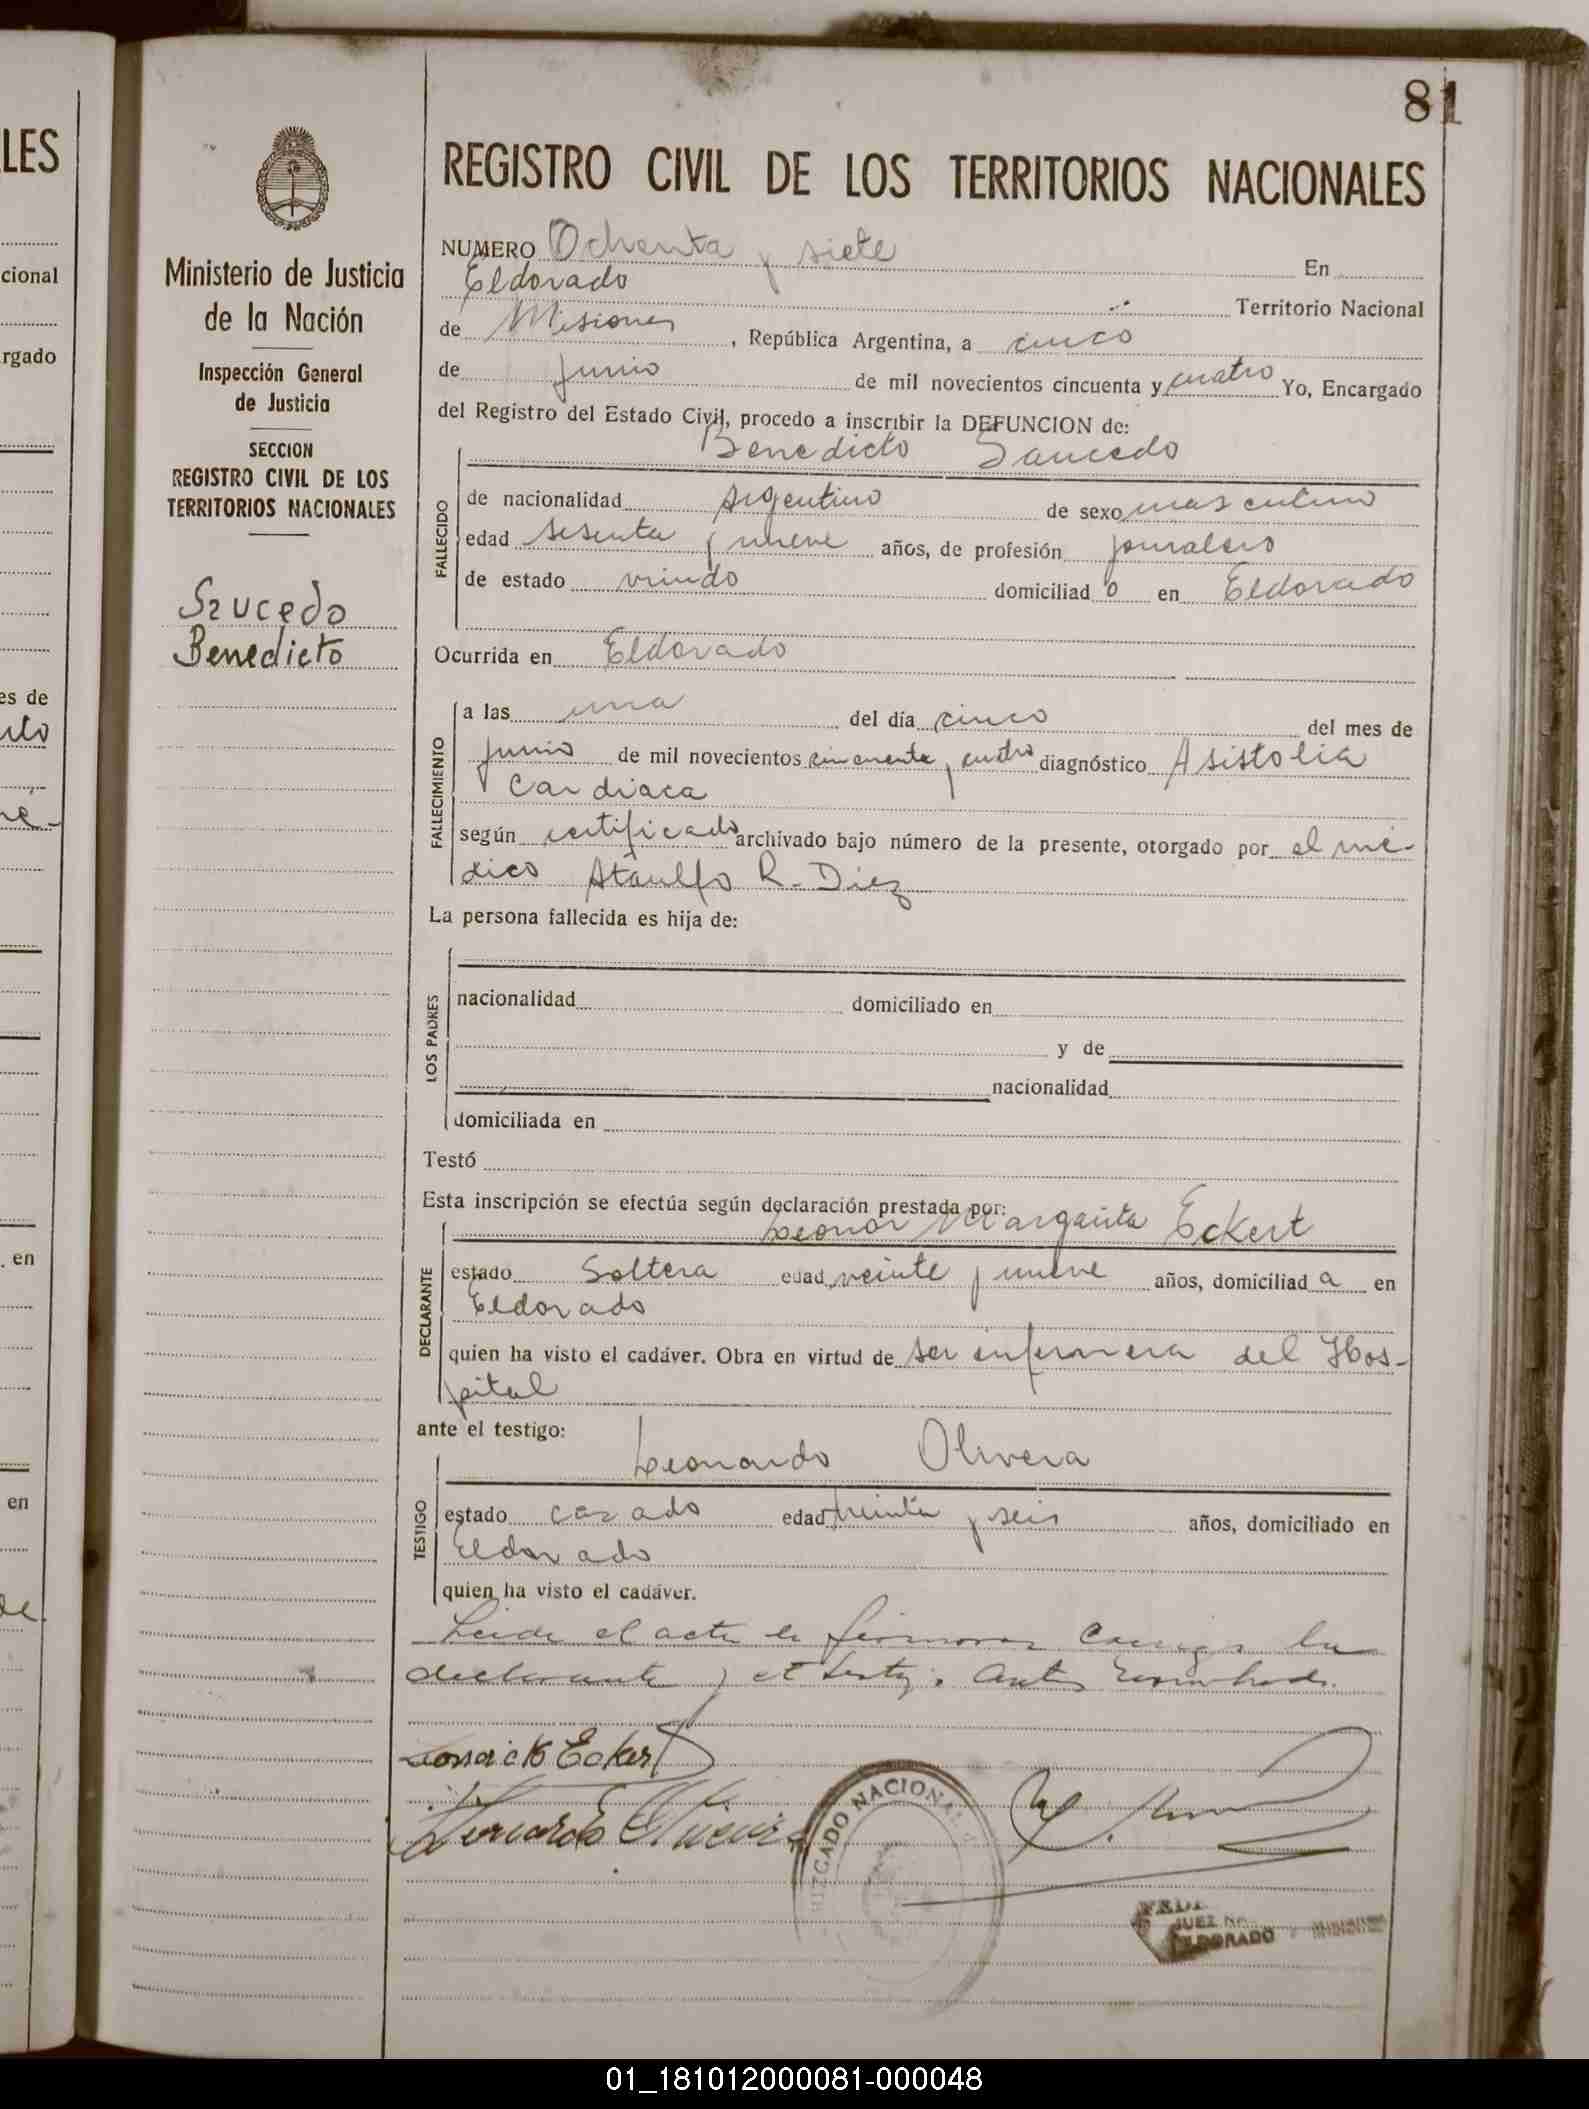 81
LES
cional
rgado
es de
en
en
Ministerio de Justicia
de la Nación
Inspección General
de Justicia
SECCION
REGISTRO CIVIL DE LOS
TERRITORIOS NACIONALES
Saucedo
Benedicto
REGISTRO CIVIL DE LOS TERRITORIOS NACIONALES
NUMERO Ochenta y siete En
Eldorado Territorio Nacional
de Misiones, República Argentina, a cinco
de junio de mil novecientos cincuenta y cuatro Yo, Encargado
del Registro del Estado Civil, procedo a inscribir la DEFUNCION de:
Benedicto Saucedo
FALLECIDO
de nacionalidad Argentino de sexo masculino
edad sesenta y nueve años, de profesión jornalero
de estado viudo domiciliado en Eldorado
Ocurrida en Eldorado
FALLECIMIENTO
a las una del día cinco del mes de
junio de mil novecientos cincuenta y cuatro diagnóstico Asistolia
Cardiaca
según certificado archivado bajo número de la presente, otorgado por el mé-
dico Ataulfo R. Diez
La persona fallecida es hija de:
LOS PADRES
nacionalidad domiciliado en
y de
nacionalidad
domiciliada en
Testó
Esta inscripción se efectúa según declaración prestada por:
Leonor Margarita Eckert
DECLARANTE
estado Soltera edad veinte y nueve años, domiciliada en
Eldorado
quien ha visto el cadáver. Obra en virtud de ser enfermera del Hos-
pital
ante el testigo:
Leonardo Olivera
TESTIGO
estado casado edad treinta y seis años, domiciliado en
Eldorado
quien ha visto el cadáver.
Leida el acta la firmaron conmigo la
declarante y el testigo antes
Eckert
JUZGADO NACIONAL
JUEZ
ELDORADO
01_181012000081-000048